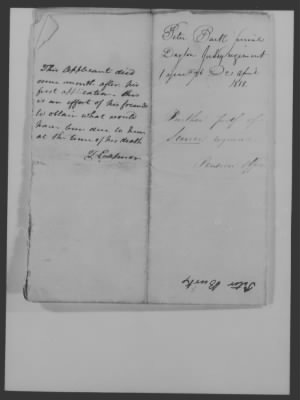 This Applicant died
some month after his
first application. This
is an effort of his friends
to obtain what would
have been due to him
at the time of his death
Peter
Dayton Jersey regiment
1 year 21 April
1818
Further proof of
Service required
Pension office
Peter